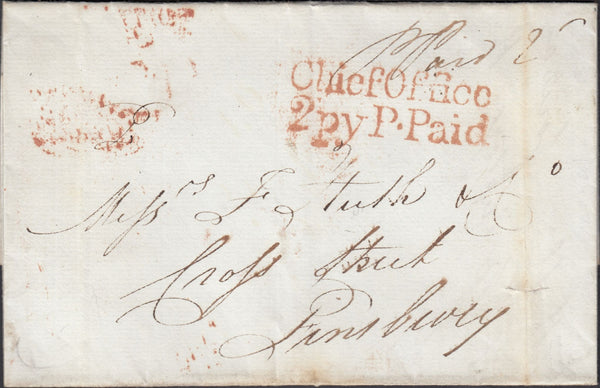 Paid 2
Chief Office
2py P. Paid
Mess.rs F. Huth & Co
Cross Street
Finsbury